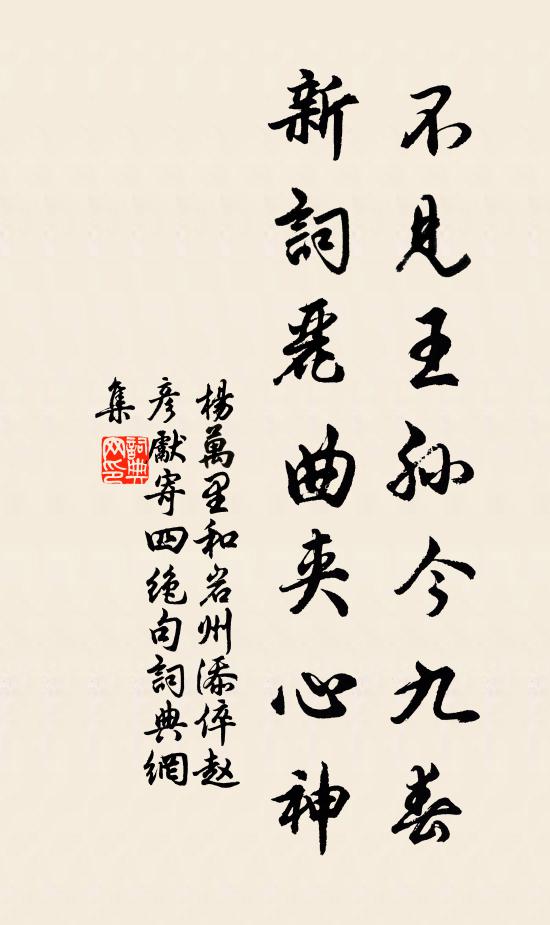 不見王孫今九春
新詞麗曲夾心神
楊萬里和岩州添倅趙
彥獻寄四絶句詞典網
集
詞典網印